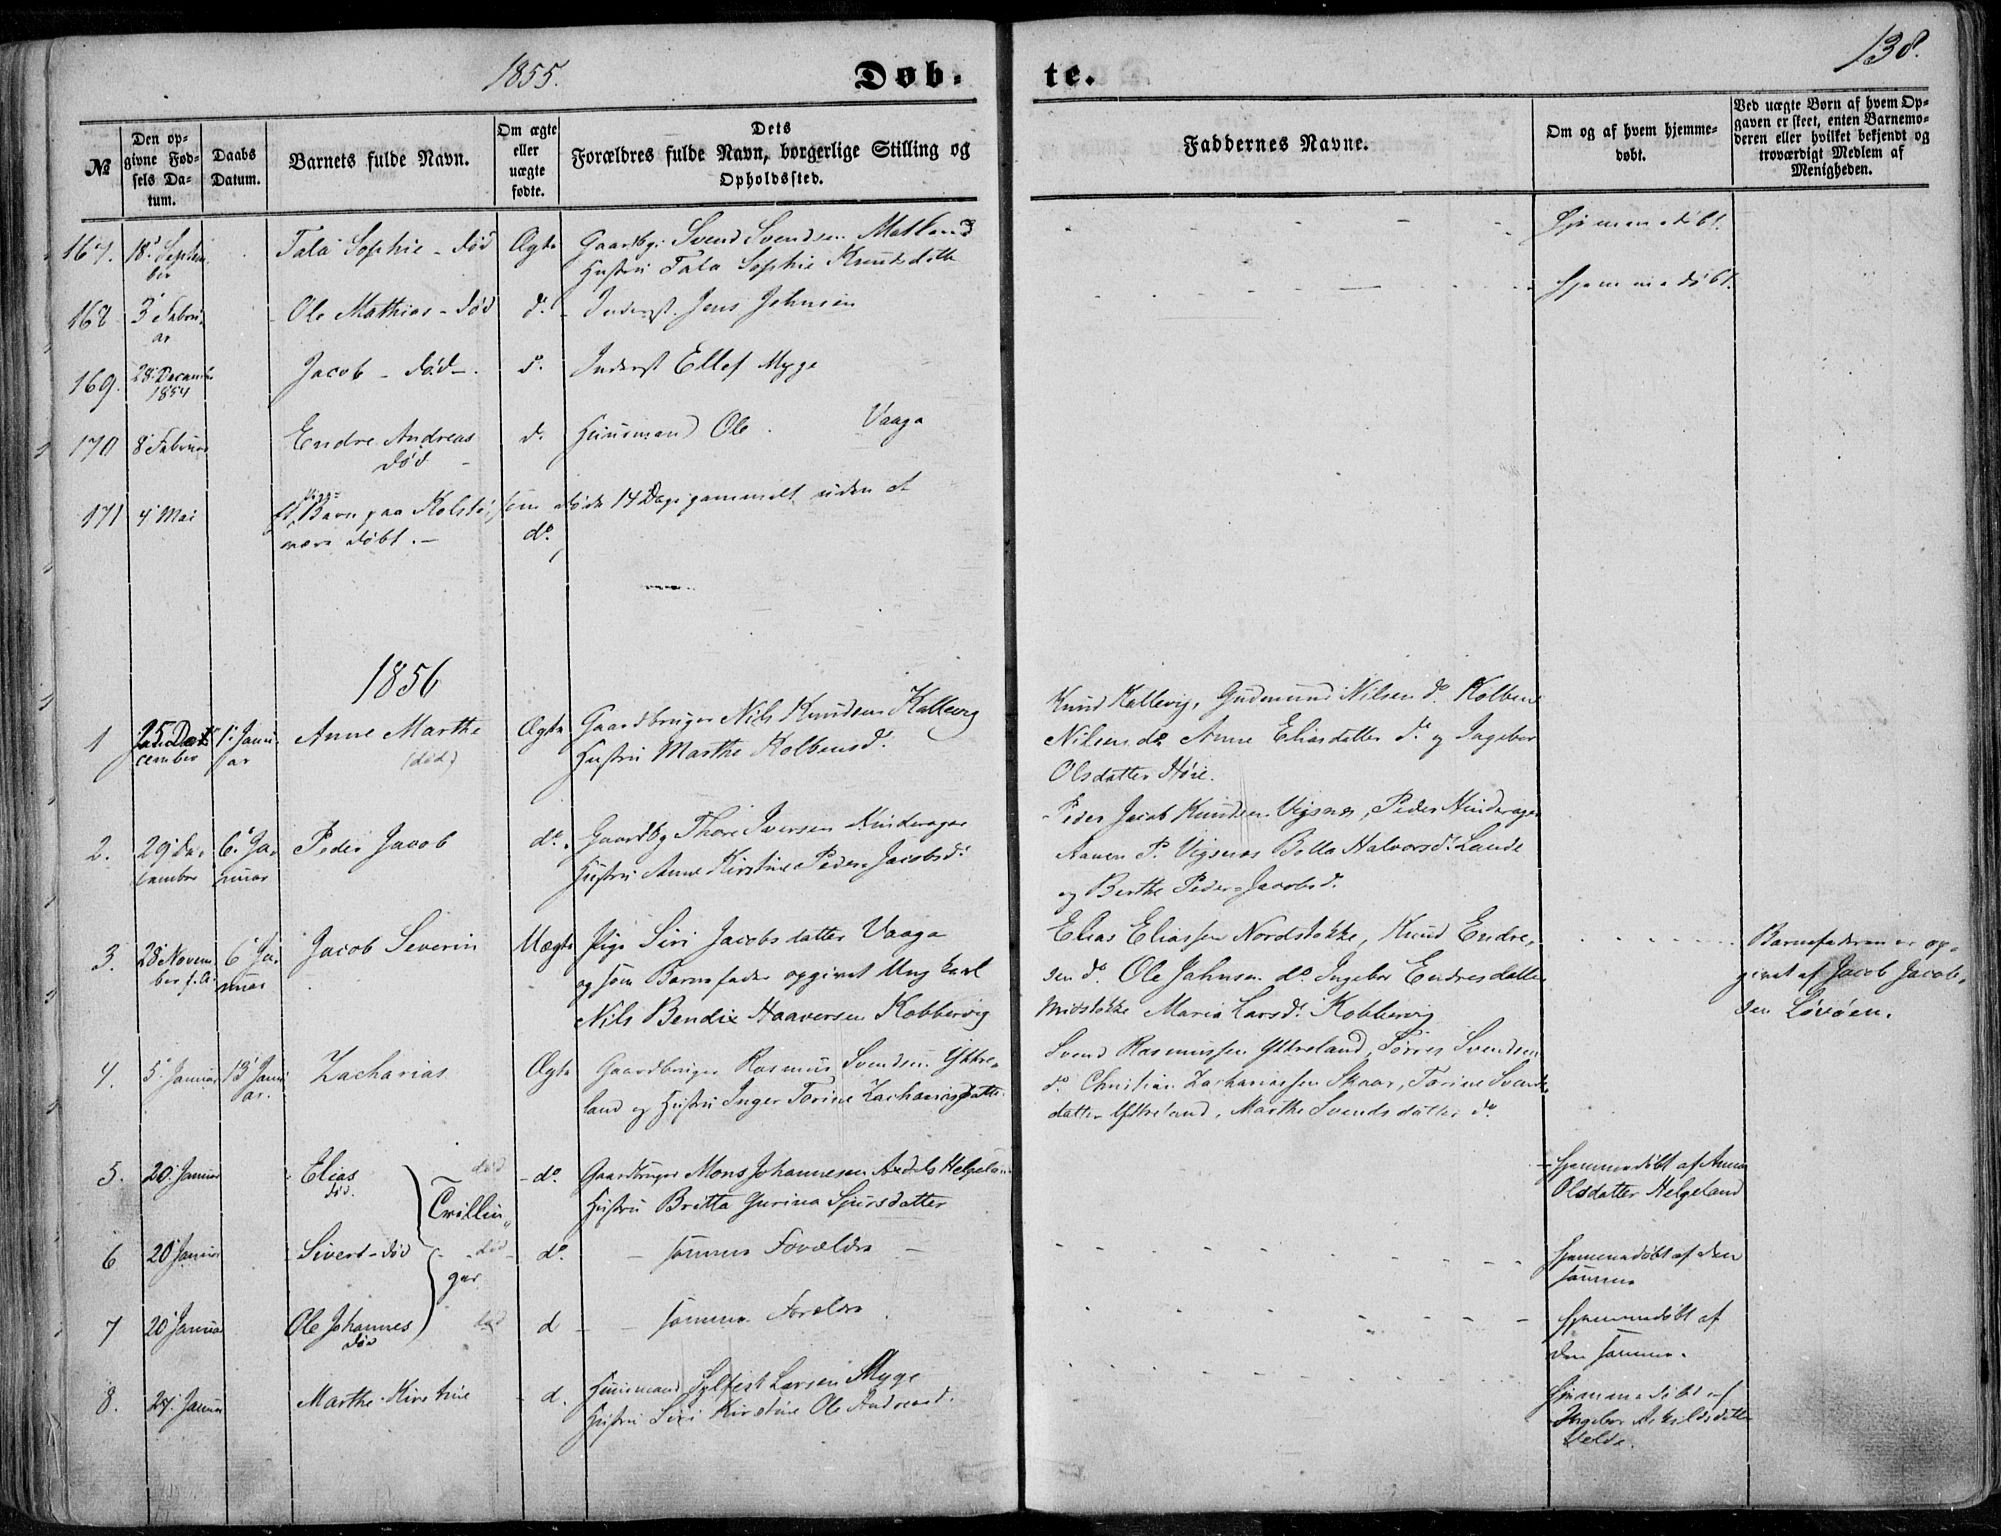 1855.
Døb-
te.
138.
№
Den op-
givne Fød-
sels Da-
tum.
Daabs
Datum.
Barnets fulde Navn.
Om ægte
eller
uægte
fødte.
Dets
Forældres fulde Navn, borgerlige Stilling og
Opholdssted.
Faddernes Navne.
Om og af hvem hjemme-
døbt.
Ved uægte Børn af hvem Op-
gaven er skeet, enten Barnemo-
deren eller hvilket bekjendt og
troværdigt Medlem af
Menigheden.
167. 18 Septem
ber
Tala Sophie - død
Ægte
Gaardbr. Svend Svendsen Matland
Hustru Tala Sophie Knudsdatt
Hjemmedøbt.
168 3 Febru
ar
Ole Mathias - død
do.
Inderst. Jens Johnsen
Hjemmedøbt.
169. 28 Decemb
1854
Jacob - død -
do.
Inderst Ellef Myge
170 8 Februar
Endre Andreas
død
d.
Huusmand Ole Vaaga
171 4 Mai
Et Pige- Barn paa Kolstø, som døde 14 Dage gammelt uden at
være døbt. -
do.
1856
1 25 De-
cember
1 Janu-
ar
Anne Marthe
(død)
Ægte
Gaardbruger Nils Knudsen Kallevig
Hustru Marthe Kolbensd.
Knud Kallevig, Gudmund Nilsen do Kolben
Nilsen do Anne Eliasdatter do og Ingebor
Olsdatter Høie.
2. 29 De-
cember
6 Ja-
nuar
Peder Jacob
do.
Gaardbg Thore Iversen Hinderager
Hustru Anne Kirstine Peder-Jacobsd.
Peder Jacob Knudsen Vigsnes, Peder Hinderager
Aanen P. Vigsnes Bolla Halvorsd. Lande
og Berthe Peder-Jacobsd.
3. 28 Novem-
ber f. A.
6 Ja-
nuar
Jacob Severin
Uægte
Pige Siri Jacobsdatter Vaaga
og som Barnefader opgivet Ung karl
Nils Bendix Haaversen Kobbervig
Elias Eliassen Nordstokke, Knud Endre-
sen do. Ole Johnsen do Ingebor Endresdatter
Midstokke Maria Larsd. Kobbervig
Barnefaderen er op-
givet af Jacob Jacob-
sen Løvøen.
4. 5 Januar
13 Janu
ar.
Zacharias
Ægte
Gaardbruger Rasmus Svendsen Yttre-
land og Hustru Inger Torine Zachariasdatter
Svend Rasmussen Yttreland, Tørres Svendsen
do. Christian Zachariassen Skaar, Torine Svends
datter Yttreland, Marthe Svendsdatter do
5. 20 Januar
Elias
død.
død
Trillin-
ger
do.
Gaardbruger Mons Johannesen Axdals Helgeland
Hustru Britta Gurina Sjursdatter
Hjemmedøbt af Anna
Olsdatter Helgeland
6 20 Januar
Sivert - død
død
do.
samme Forældre
Hjemmedøbt af den
samme
7 20 Januar
Ole Johannes
død
død
d
samme Forældre
Hjemmedøbt af
den samme.
8. 24. Januar
Marthe Kirstine
d.
Huusmand Sylfest Larsen Myge
Hustru Siri Kirstine Ole Andreasd.
Hjemmedøbt af
Ingebor Askildsdatter
Velde.